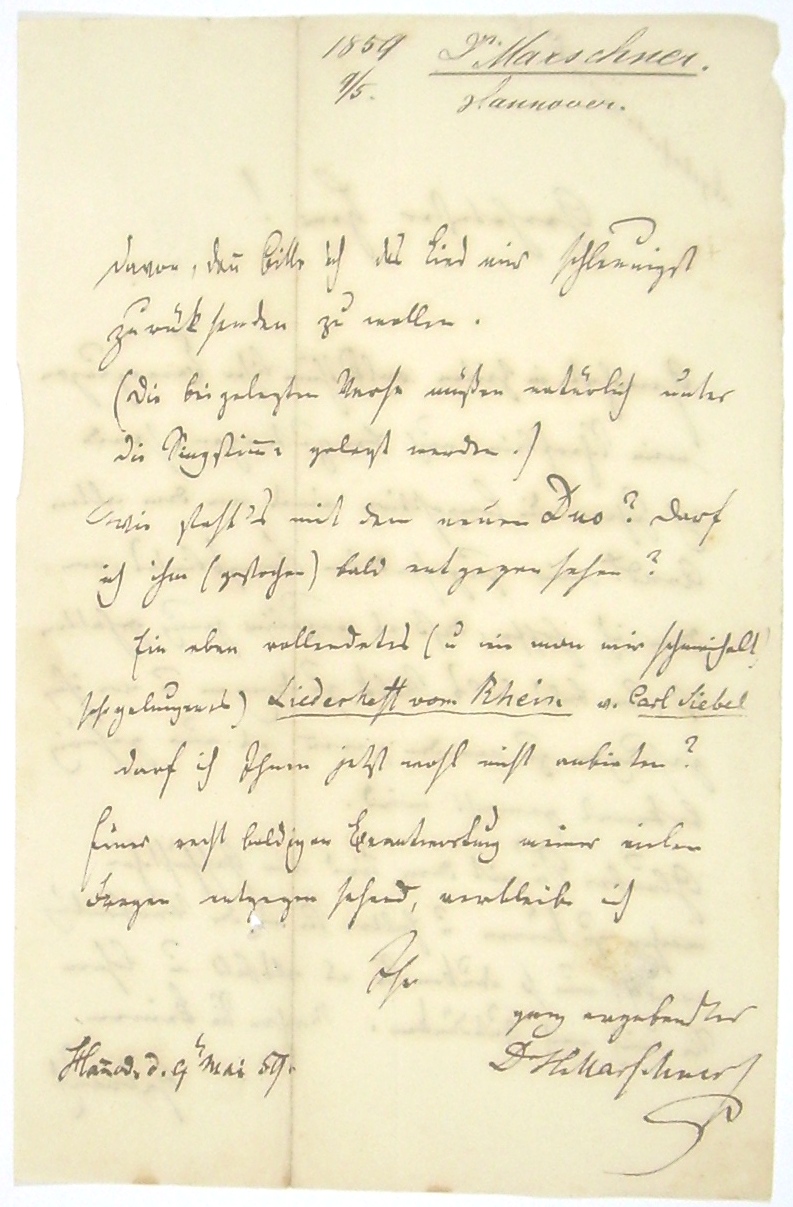 1859 Dr. Marschner.
9/5. Hannover.
davon, dan̄ bitte ich das Lied mir schleunigst
zurük senden zu wollen.
(Die beigelegten Verse müßen natürlich unter
die Singstim̄e gelegt werden.)
Wie steht's mit dem neuen Duo? Darf
ich ihm (gestochen) bald entgegen sehen?
Ein eben vollendetes (u wie man mir schmeichelt,
sehr gelungenes) Liederheft vom Rhein v. Carl Siebel
darf ich Ihnen jetzt wohl nicht anbieten?
Einer recht baldigen Beantwortung meiner vielen
Fragen entgegen sehend, verbleibe ich
Ihr
ganz ergebenster
Han̄ov. d. 9t Mai 59. Dr HMarschner